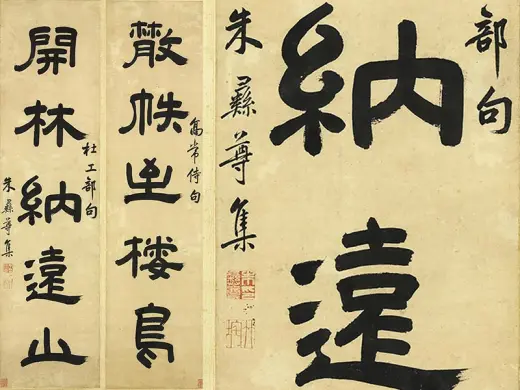 散帙至棲鳥
高常侍句
開林納遠山
杜工部句
朱彝尊集
部句
納遠
朱彝尊集